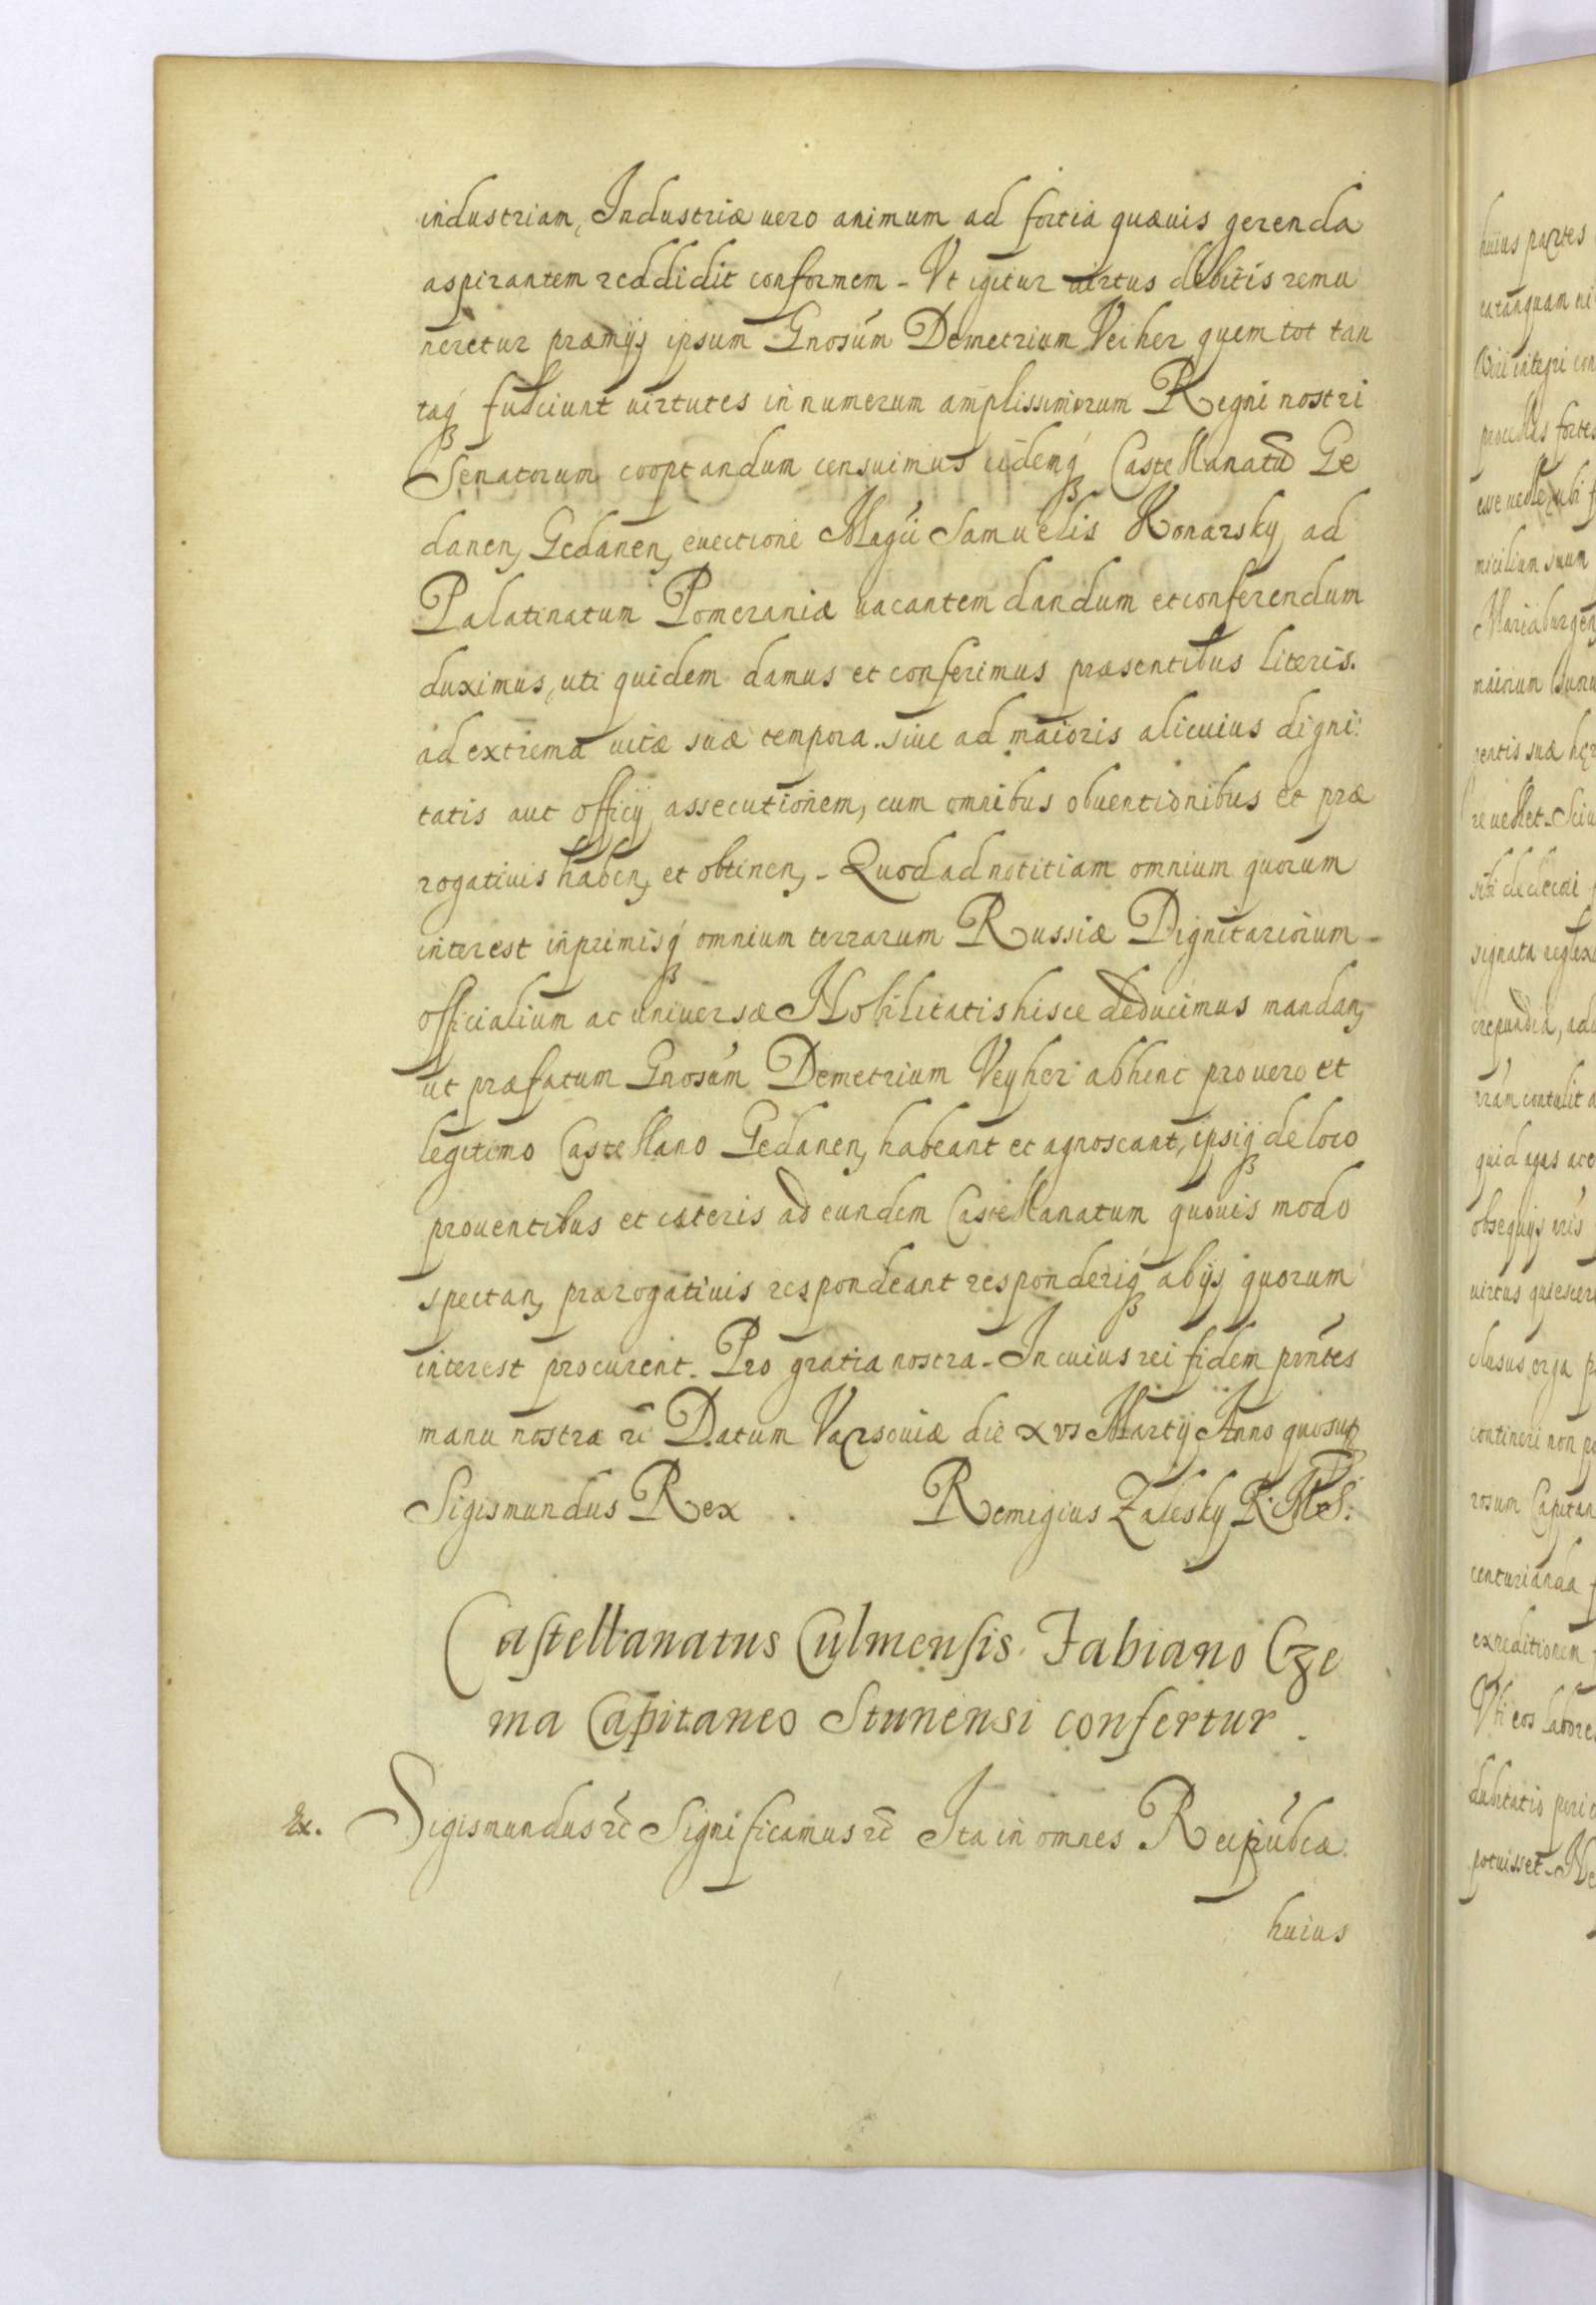 industriam, Industriæ uero animum ad fortia quæuis gerenda
aspirantem reddidit conformem - Vt igitur uirtus debitis remu
neretur præmijs ipsum Gnosum Demetrium Veiher quem tot tan
taq fulciunt uirtutes in numerum amplissimorum Regni nostri
Senatorum cooptandum censuimus eidemq Castellanatū Ge
danen, Gedanen, euectione Magci Samuelis Konarsky ad
Palatinatum Pomeraniæ uacantem dandum et conferendum
duximus, uti quidem damus et conferimus præsentibus literis.
ad extrema uitæ suæ tempora. siue ad maioris alicuius digni:
tatis aut officij assecutionem, cum omnibus obuentionibus et præ
rogatiuis haben, et obtinen, - Quod ad notitiam omnium quorum
interest inprimisq omnium terrarum Russiæ Dignitariorum -
officialium ac uniuersæ Nobilitatis hisce deducimus mandan,
ut præfatum Gnosum Demetrium Veyher abhinc pro uero et
legitimo Castellano Gedanen, habeant et agnoscant, ipsiq de loco
prouentibus et cæteris ad eundem Castellanatum quouis modo
spectan, prærogatiuis respondeant responderiq ab ijs quorum
interest procurent. Pro gratia nostra - In cuius rei fidem pñtes
manu nostra rc Datum Varsouiæ die xvi Martij Anno quo sup
Sigismundus Rex . Remigius Zalesky R. M. S:
Castellanatus Culmensis Fabiano Cze
ma Capitaneo Stunensi confertur.
Ex. Sigismundus rc Significamus rc Ita in omnes Reipubcæ
huius
huius partes
micilium suum
rentis suæ
re uellet
signata
crepundia,
contulit
quid agas
obsequijs
uirtus quiescere
clusus erga
contineri non
rosum Capitan
centurianda
expeditionem
Vti eos labores
dubitatio
potuisset -